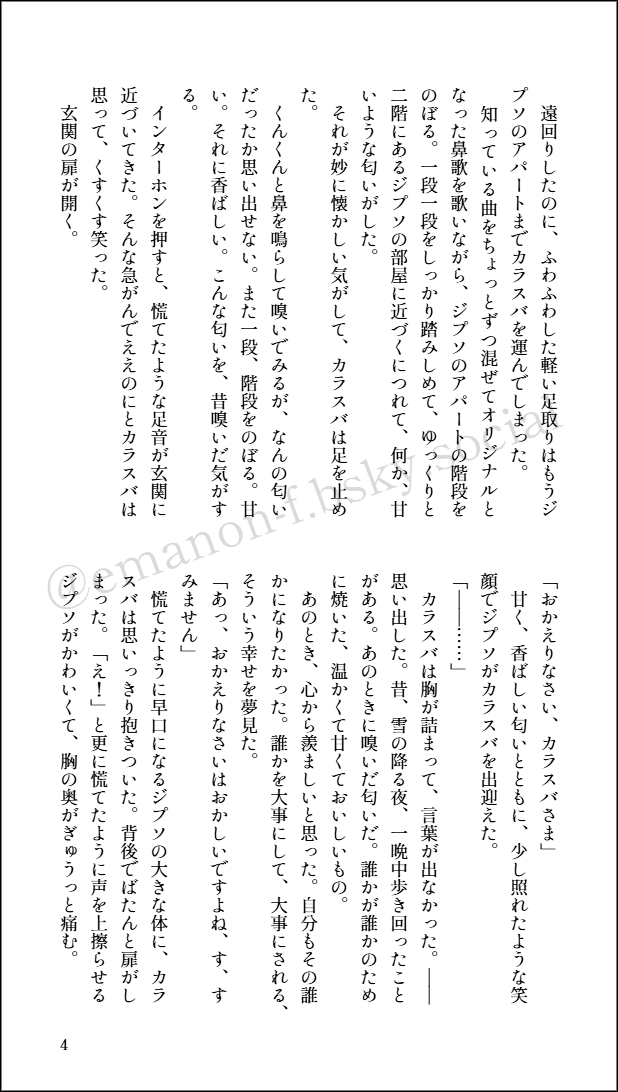 遠回りしたのに、ふわふわした軽い足取りはもうジ
プソのアパートまでカラスバを運んでしまった。
　知っている曲をちょっとずつ混ぜてオリジナルと
なった鼻歌を歌いながら、ジプソのアパートの階段を
のぼる。一段一段をしっかり踏みしめて、ゆっくりと
二階にあるジプソの部屋に近づくにつれて、何か、甘
いような匂いがした。
　それが妙に懐かしい気がして、カラスバは足を止め
た。
　くんくんと鼻を鳴らして嗅いでみるが、なんの匂い
だったか思い出せない。また一段、階段をのぼる。甘
い。それに香ばしい。こんな匂いを、昔嗅いだ気がす
る。
　インターホンを押すと、慌てたような足音が玄関に
近づいてきた。そんな急がんでええのにとカラスバは
思って、くすくす笑った。
　玄関の扉が開く。
「おかえりなさい、カラスバさま」
　甘く、香ばしい匂いとともに、少し照れたような笑
顔でジプソがカラスバを出迎えた。
「――……」
　カラスバは胸が詰まって、言葉が出なかった。――
思い出した。昔、雪の降る夜、一晩中歩き回ったこと
がある。あのときに嗅いだ匂いだ。誰かが誰かのため
に焼いた、温かくて甘くておいしいもの。
　あのとき、心から羨ましいと思った。自分もその誰
かになりたかった。誰かを大事にして、大事にされる、
そういう幸せを夢見た。
「あっ、おかえりなさいはおかしいですよね、す、す
みません」
　慌てたように早口になるジプソの大きな体に、カラ
スバは思いっきり抱きついた。背後でばたんと扉がし
まった。「え！」と更に慌てたように声を上擦らせる
ジプソがかわいくて、胸の奥がぎゅうっと痛む。
4
@emanon-f.bsky.social